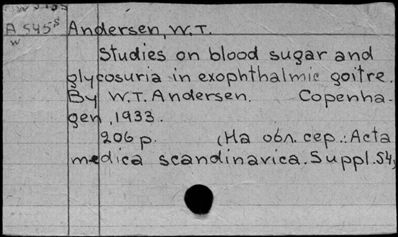 A 545⁵ Andersen, W.T.
W
Studies on blood sugar and
glycosuria in exophthalmic goitre.
By W.T. Andersen. Copenha-
gen, 1933.
206 p. (На обл. сер.: Acta
medica scandinavica. Suppl. 54)